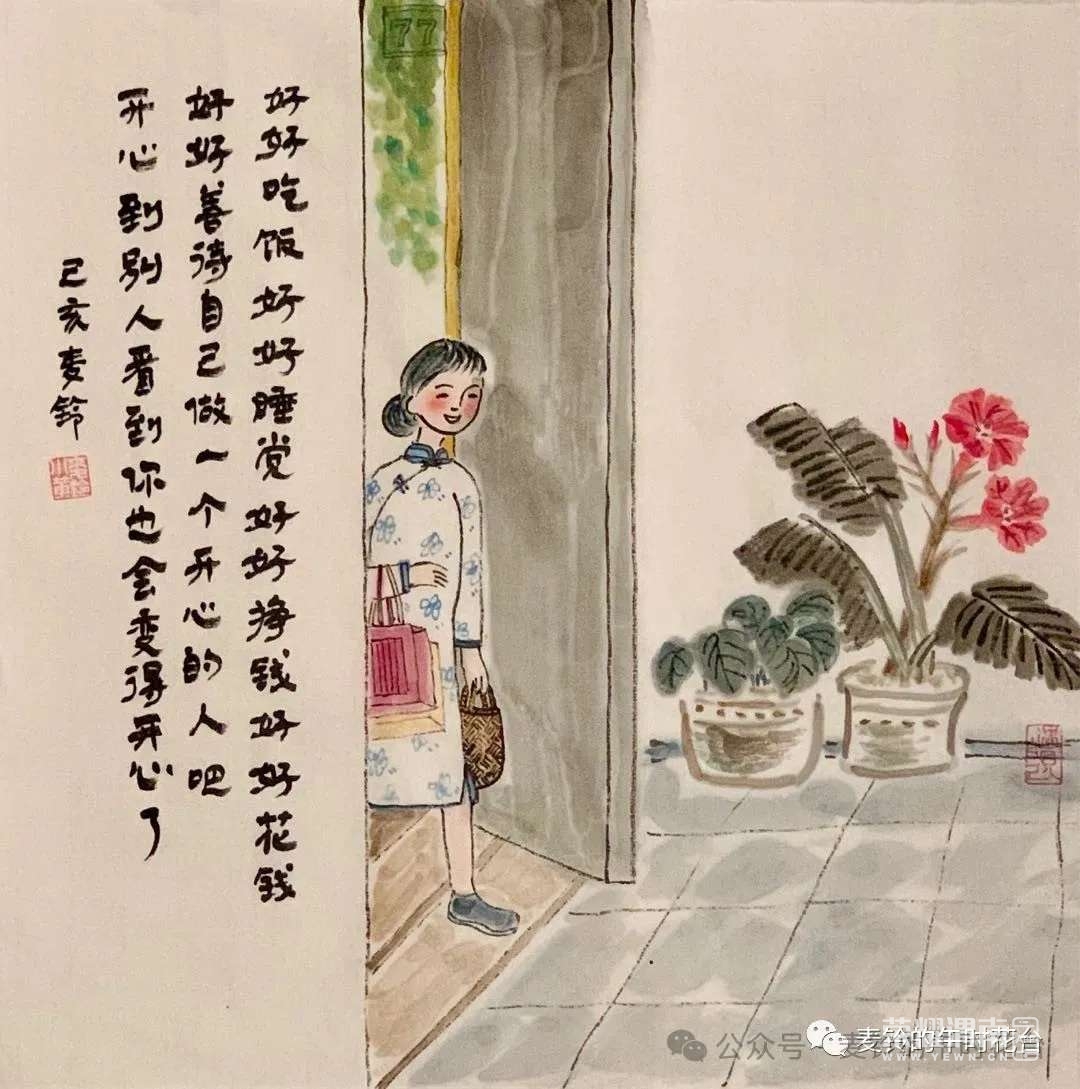 好好吃饭好好睡觉好好挣钱好好花钱
好好善待自己做一个开心的人吧
开心到别人看到你也会变得开心了
己亥麦铃
77
公众号·麦铃的午时花台
麦铃的午时花台
WWW.YEWN.CN